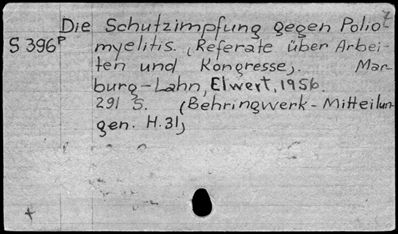 Die Schutzimpfung gegen Polio
S 396P myelitis. (Referate über Arbei-
ten und Kongresse). Mar-
burg-Lahn, Elwert, 1956.
291 S. (Behringwerk-Mitteilun-
gen. H. 31)